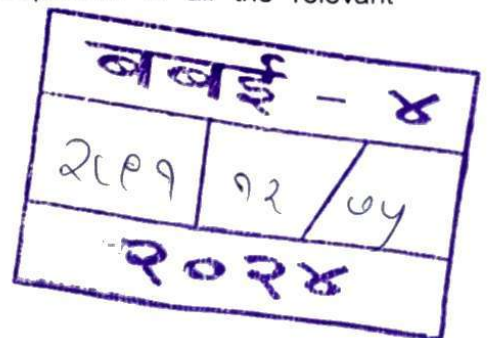 all the relevant
बबई - ४
२८९१ १२ / ७५
२०२४